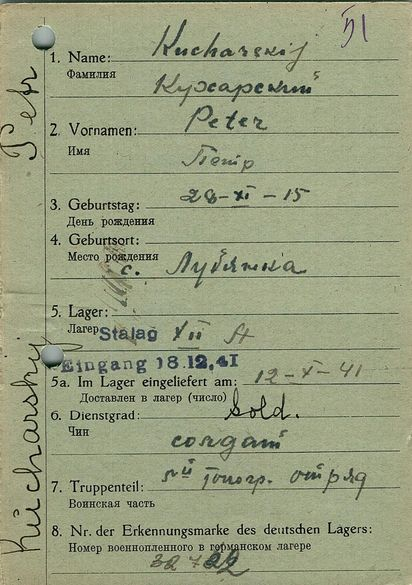 51
1. Name: Kucharskij
Фамилия Кухарский
2. Vornamen: Peter
Имя Петр
3. Geburtstag: 28-XI-15
День рождения
4. Geburtsort:
Место рождения с. Лубянка
5. Lager:
Лагерь Stalag XII A
Eingang 18.12.41
5a. Im Lager eingeliefert am: 12-X-41
Доставлен в лагерь (число)
6. Dienstgrad: Sold.
Чин солдат
7. Truppenteil: топогр. отряд
Воинская часть
8. Nr. der Erkennungsmarke des deutschen Lagers:
Номер военнопленного в германском лагере
Kucharsky Petr